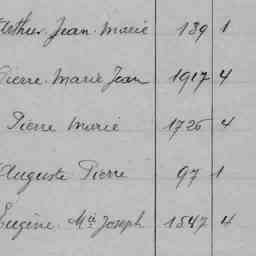 Jean Marie 139 1
Pierre Marie Jean 1917 4
Pierre Marie 1726 4
Auguste Pierre 97 1
Eugène Mie Joseph 1547 4